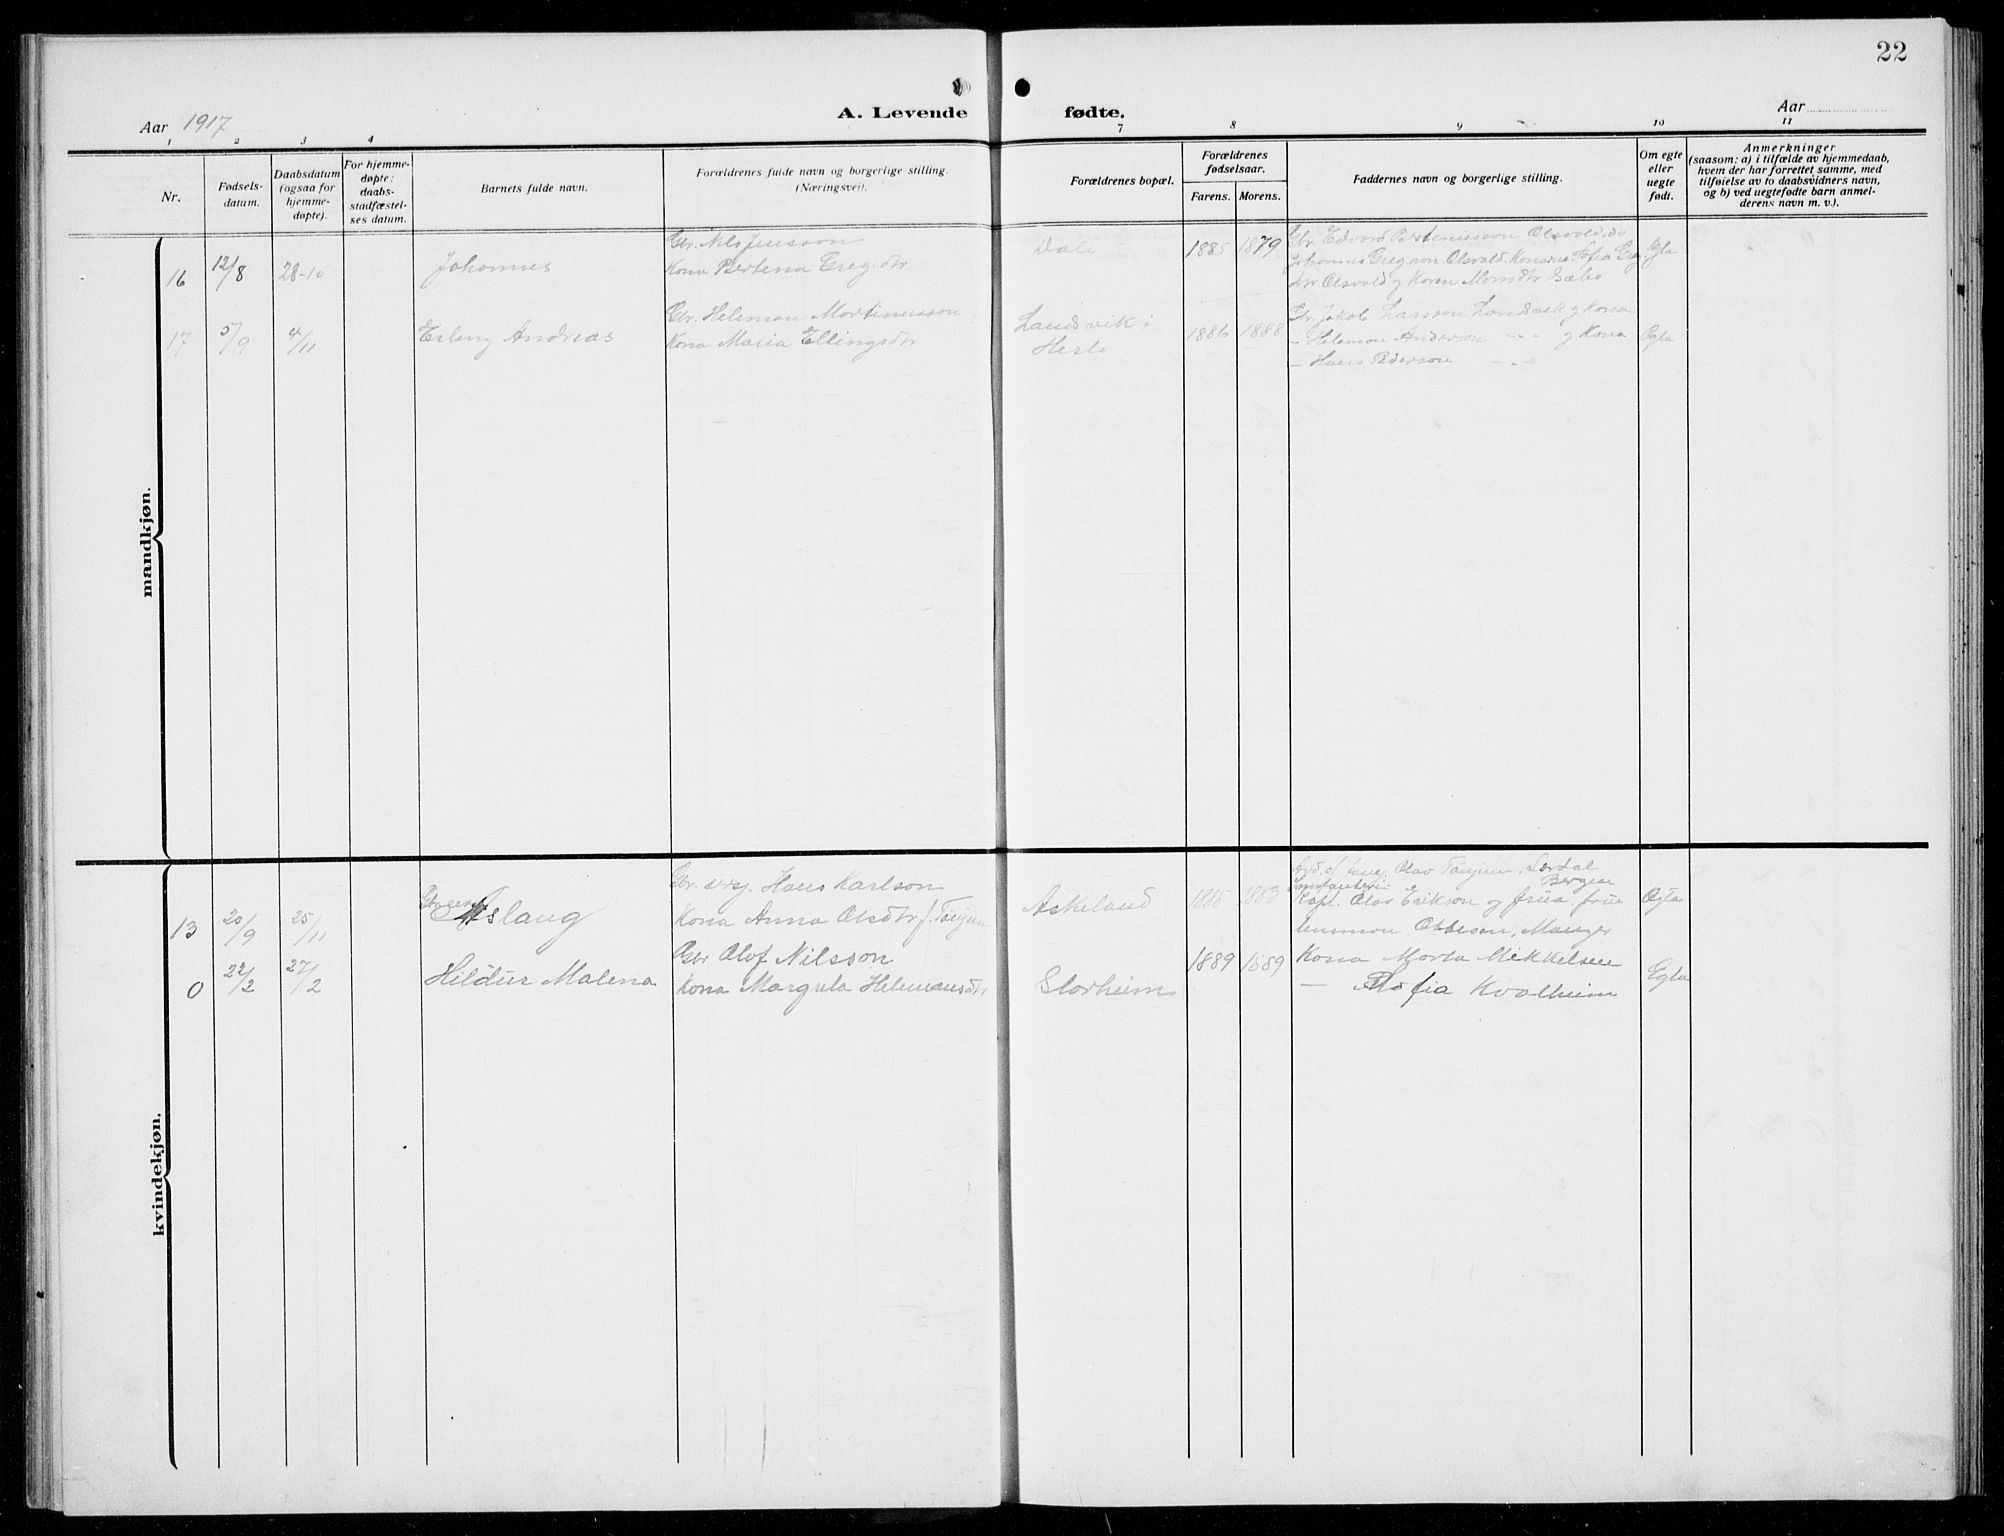 22
Aar 1917
A. Levende fødte.
Aar
1 2 3 4 7 8 9 10 11
Nr.
Fødsels-
datum.
Daabsdatum
(ogsaa for
hjemme-
døpte).
For hjemme-
døpte:
daabs-
stadfæstel-
ses datum.
Barnets fulde navn.
Forældrenes fulde navn og borgerlige stilling.
(Næringsvei).
Forældrenes bopæl.
Forældrenes
fødselsaar.
Farens. Morens.
Faddernes navn og borgerlige stilling.
Om egte
eller
uegte
født.
Anmerkninger
(saasom: a) i tilfælde av hjemmedaab,
hvem der har forrettet samme, med
tilføielse av to daabsvidners navn,
og b) ved uegtefødte barn anmel-
derens navn m. v.).
mandkjøn.
16 12/8 28-10 Johannes
Gbr. Nils Jensson
Kona Bertena Greg.dtr
Dale 1885 1879
Gbr. Edvard Berteniusson Olsvold,
Johannes Greg.son Olsvold. Kona Sofia Greg.
Olsvold og Karen Monsdtr Sæbo
Egta
17 5/9 4/11 Erling Andreas
Gbr. Heleman Martinusson
Kona Maria Ellingsdtr
Landsvik i
Herlø
1886 1888
Gbr. Jakob Larsson Landsvik og Kona
- Heleman Anderson - - - og Kona
- Hans Pederson - " -
Egta
kvindekjøn.
13 20/9 25/11 Aslaug
Gbr. serg. Hans Karlson
Kona Anna Olsdtr f. Tønjum
Askeland 1885 1889
Olav Tønjum, Lærdal
Bergen
Infanteri-
Kapt. Olav Erikson og frua, frue
lensmon Otteson, Manger
Egta
0 22/2 27/2 Hildur Malena
Gbr Olof Nilsson
Kona Margreta Helemansdtr
Storheim 1889 1889
Kona Marta Mikkelsen
- Sofia Kvalheim
Egta